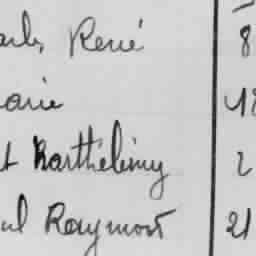 René 8
arie 18
t Barthélémy 2
ul Raymond 21